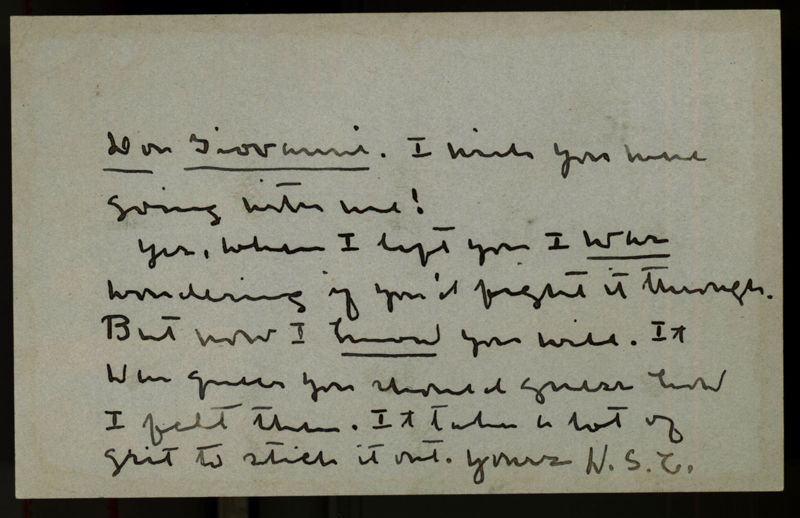 Don Giovanni. I wish you were
going with me!
Yes, when I left you I was
wondering if you'd fight it through.
But now I know you will. It
was queer you should guess how
I felt then. It takes a lot of
grit to stick it out. Yours H. S. C.